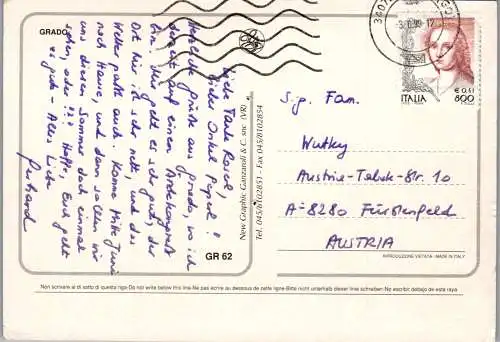 GRADO
Liebe Tante Rosel,
lieber Onkel Pepserl!
Herzliche Grüße aus Grado, wo ich
derzeit auf einem Arbeitskongreß
bin. Mir geht es sehr gut, der
Ort hier ist sehr nett und das
Wetter paßt auch. Komme Mitte Juni
nach Hause, und dann sollten wir
uns diesen Sommer doch einmal
sehen, oder!?! Hoffe, Euch geht
es gut - Alles Liebe
Gerhard
GR 62
New Graphic Ganzaroli & C. snc (VR)
Tel. 045/8102851 - Fax 045/8102854
ITALIA
€ 0,41
800
Sig. Fam.
Wutky
Austria-Tabak-Str. 10
A-8280 Fürstenfeld
AUSTRIA
RIPRODUZIONE VIETATA - MADE IN ITALY
Non scrivere al di sotto di questa riga-Do not write below this line-Ne pas écrire au dessous de cette ligne-Bitte nicht unterhalb dieser line schreiben-No escribir debajo de esta raya